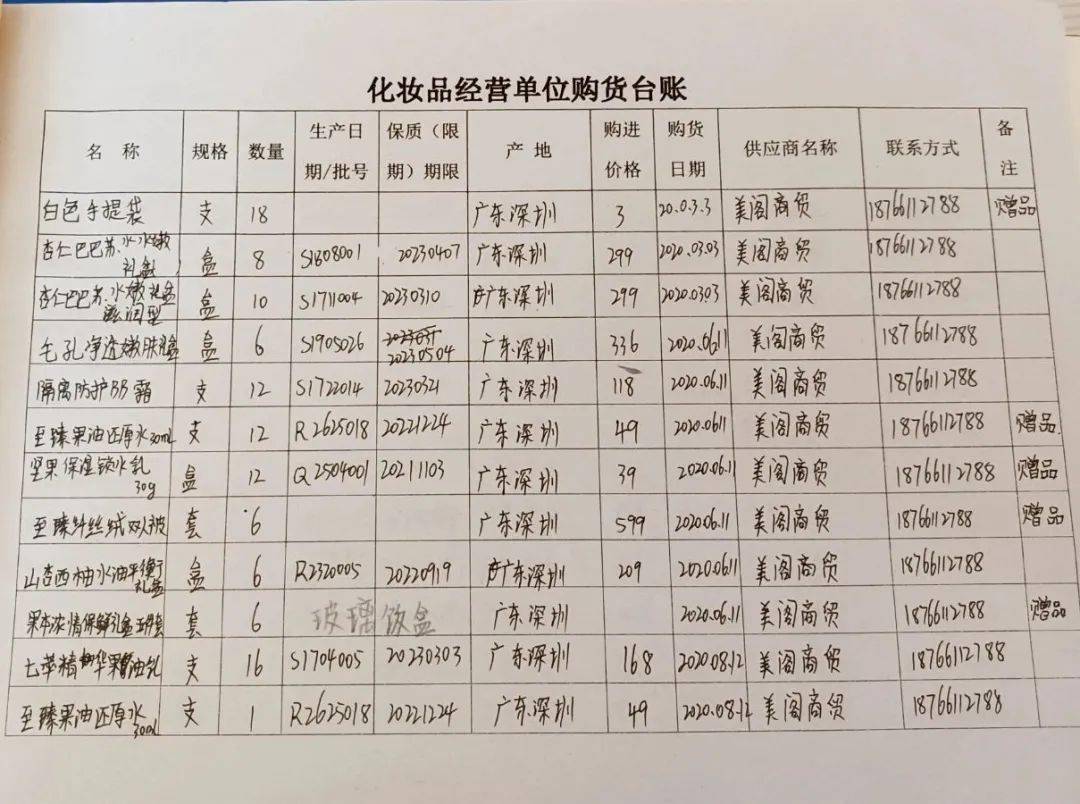 化妆品经营单位购货台账
名 称 规格 数量 生产日期/批号 保质(限期)期限 产 地 购进价格 购货日期 供应商名称 联系方式 备注
白色手提袋 支 18 广东深圳 3 20.0.3.3 美阁商贸 18766112788 赠品
杏仁巴巴苏、水水嫩礼盒 盒 8 S1808001 20230407 广东深圳 299 2020.03.03 美阁商贸 18766112788
杏仁巴巴苏、水嫩礼盒滋润型 盒 10 S1711004 20230310 广东深圳 299 2020.0303 美阁商贸 18766112788
毛孔净透嫩肤礼盒 盒 6 S1905026 20230504 广东深圳 336 2020.0611 美阁商贸 18766112788
隔离防护BB霜 支 12 S1722014 20230321 广东深圳 118 2020.06.11 美阁商贸 18766112788
至臻果油还原水30ml 支 12 R2625018 20221224 广东深圳 49 2020.0611 美阁商贸 18766112788 赠品
坚果保湿锁水乳30g 盒 12 Q2504001 20211103 广东深圳 39 2020.06.11 美阁商贸 18766112788 赠品
至臻纤丝绒双人被 套 6 广东深圳 599 2020.06.11 美阁商贸 18766112788 赠品
山杏西柚水油平衡礼盒 盒 6 R2320005 20220919 广东深圳 209 2020.0611 美阁商贸 18766112788
果本浓情保鲜礼盒五件套 套 6 玻璃饭盒 广东深圳 2020.06.11 美阁商贸 18766112788 赠品
七萃精华果油乳 支 16 S1704005 20230303 广东深圳 168 2020.08.12 美阁商贸 18766112788
至臻果油还原水30ml 支 1 R2625018 20221224 广东深圳 49 2020.08.12 美阁商贸 18766112788